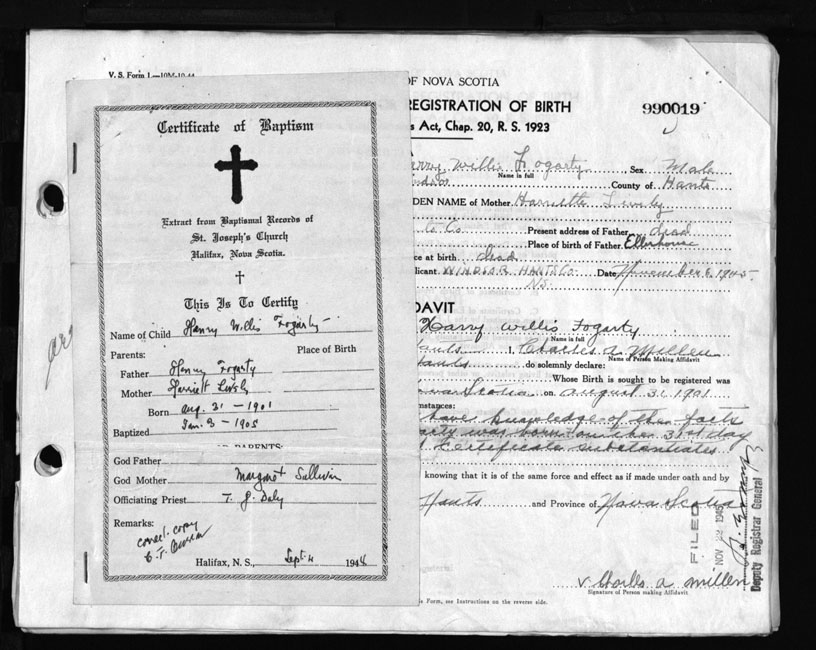 V. S. Form 1.—10M-10-44
Certificate of Baptism
Extract from Baptismal Records of
St. Joseph's Church
Halifax, Nova Scotia.
This Is To Certify
Name of Child Harry Willis Fogarty
Parents: Place of Birth
Father Henry Fogarty
Mother Harriett
Born Aug. 31 - 1901
Baptized Jan. 3 - 1905
PARENTS:
God Father
God Mother Margaret Sullivan
Officiating Priest T. J. Daly
Remarks:
correct copy
Halifax, N. S., Sept. 4 194
OF NOVA SCOTIA
REGISTRATION OF BIRTH
990019
s Act, Chap. 20, R. S. 1923
arry Willis Fogarty Sex Male
Name in full
County of Hants
DEN NAME of Mother Harriette
Co. Present address of Father dead
Place of birth of Father Ellershouse
ce at birth dead
licant WINDSOR HANTS Co. Date November 6, 1945.
N.S.
DAVIT
Harry Willis Fogarty
Name in full
ants I, Charles A. Millen
Name of Person Making Affidavit
Hants do solemnly declare:
Whose Birth is sought to be registered was
ova Scotia on August 31, 1901
mstances:
have knowledge of the facts
arty was born on the 31st day
Certificate substantiates
knowing that it is of the same force and effect as if made under oath and by
Hants and Province of Nova Scotia
FILED
NOV 1945
Deputy Registrar General
v. Charles A Millen
Signature of Person making Affidavit
e Form, see Instructions on the reverse side.